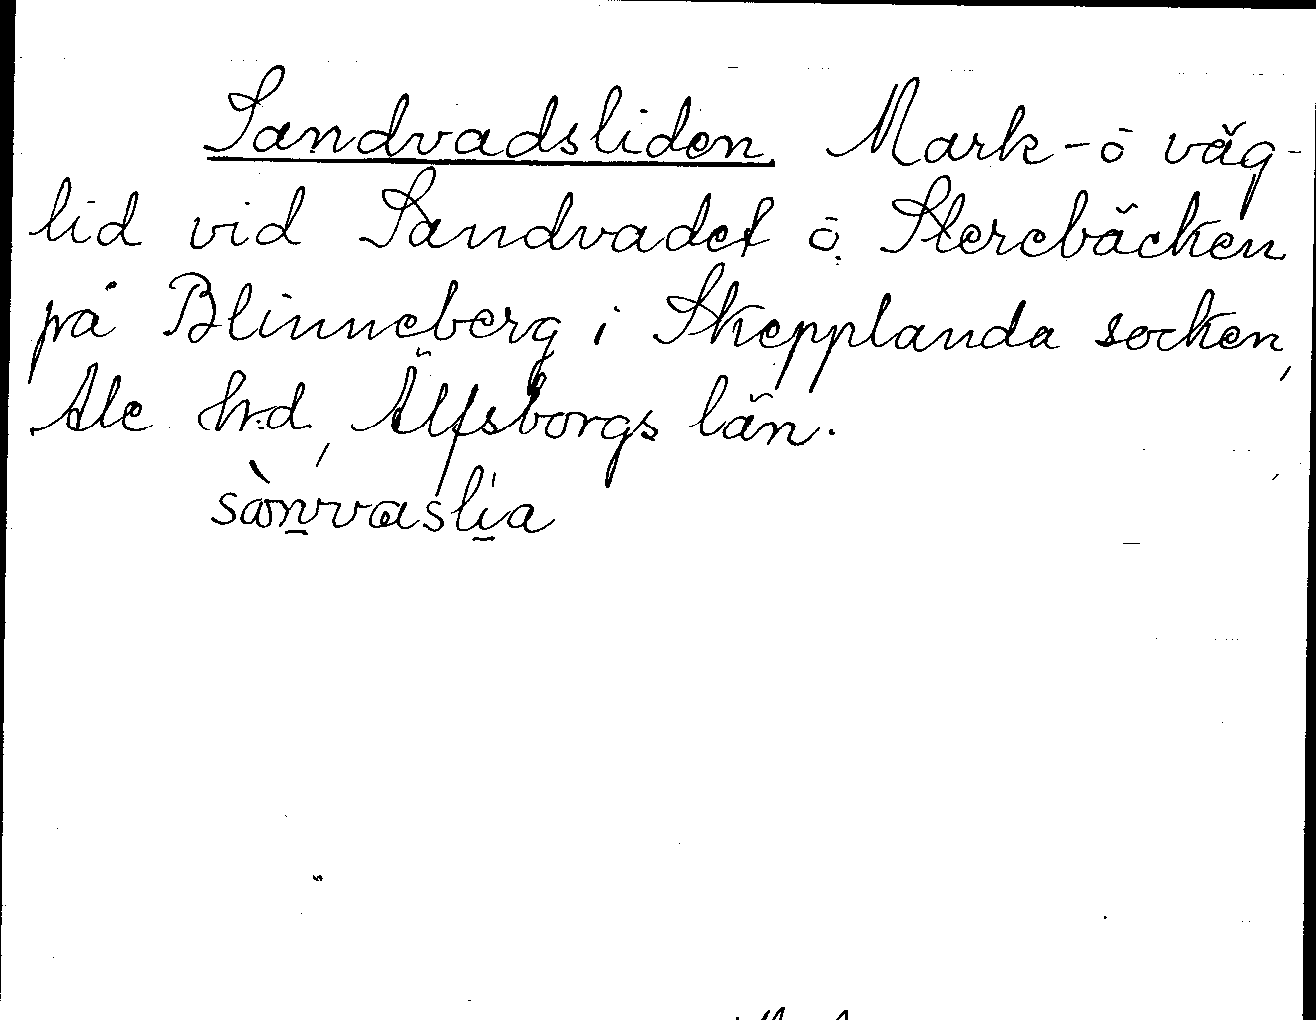 Sandvadsliden Mark- o väg-
lid vid Sandvadet ö. Sterebäcken
på Blinneberg i Skepplanda socken,
Ale hrd, Älfsborgs län.
sànvvaslia